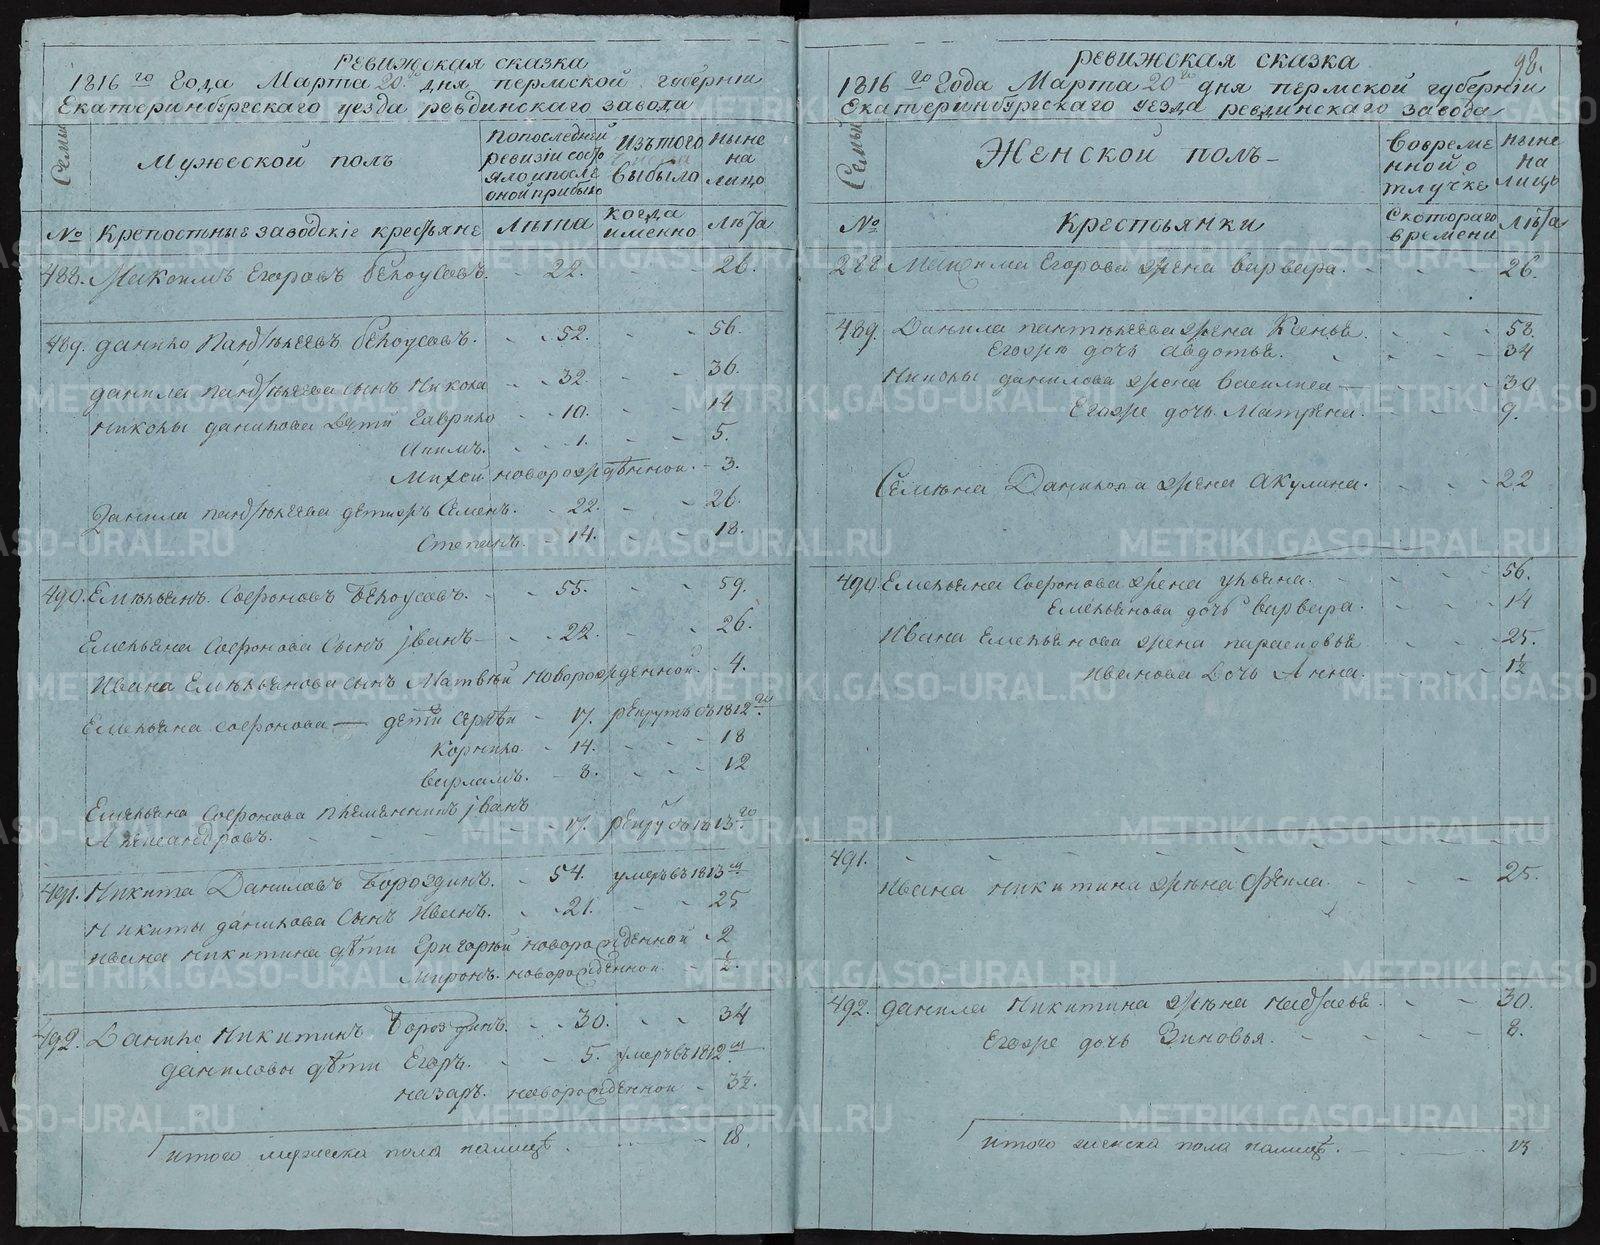 Ревижская сказка
1816го Года Марта 20го дня пермской губернїи
Екатеринбургскаго уезда ревдинскаго завода
Семьи
Мужеской полъ
Попоследней ревизїи состояло ипосле оной прибыло
Изътого числа выбыло
ныне на лицо
№ Крепостные заводскїе крестьяне
Лѣта
когда именно
Лѣта
488. Максимъ Егоровъ Белоусовъ. 22. 26.
489. данило Пантѣлеевъ Белоусовъ. 52. 56.
данила пантѣлеева сынъ Никола 32. 36.
николы данилова дѣти Гаврило 10. 14
Акимъ. 1. 5.
Михей новорожденной. 3.
Данила пантѣлеева детижъ Семенъ. 22. 26.
Степанъ. 14. 18.
490. Емельянъ Софроновъ Белоусовъ. 55. 59.
Емельяна Софронова Сынъ Іванъ 22. 26.
Ивана Емельянова сынъ Матвѣй новорожденной. 4.
Емельяна софронова дети Сергѣй 17. рекрутъ въ 1812го
Корнило 14. 18
варламъ. 8. 12
Емельяна Софронова племянникъ Іванъ
Александровъ. 17. рекрутъ въ 1813го
491. Никита Даниловъ Бороздинъ. 54. умеръ въ 1813м
Никиты данилова Сынъ Иванъ. 21. 25
ивана никитина дѣти Григорей новорожденной 2
Миронъ новорожденной ½.
492. Данило Никитинъ Бороздинъ. 30. 34
даниловы дѣти Егоръ. 5. умеръ въ 1812м
назаръ новорожденной 3½.
итого мужеска пола налицѣ. 18.
98.
ревижская сказка
1816го Года Марта 20го дня пермской губернїи
Екатеринбургскаго уезда ревдинскаго завода
Семьи
Женской полъ
Вовременной отлучке
ныне на лицо
№
Крестьянки
Скотораго времени
Лѣта
488 Максима Егорова жена варвара. 26.
489. Данила пантелеева жена Ксенья. 58
Егоже дочь Авдотья. 34
Николы данилова жена василиса 30
Егоже дочь Матрена. 9.
Семена Данилова жена Акулина. 22
490. Емельяна Софронова жена ульяна. 56.
Емельянова дочь варвара. 14
Ивана Емельянова жена парасковья 25.
иванова дочь Анна. 1½
491.
ивана никитина жена Фекла. 25.
492. данила Никитина жена Настасья. 30.
Егоже дочь Зиновья. 8.
итого женска пола налицѣ. 13
METRIKI.GASO-URAL.RU